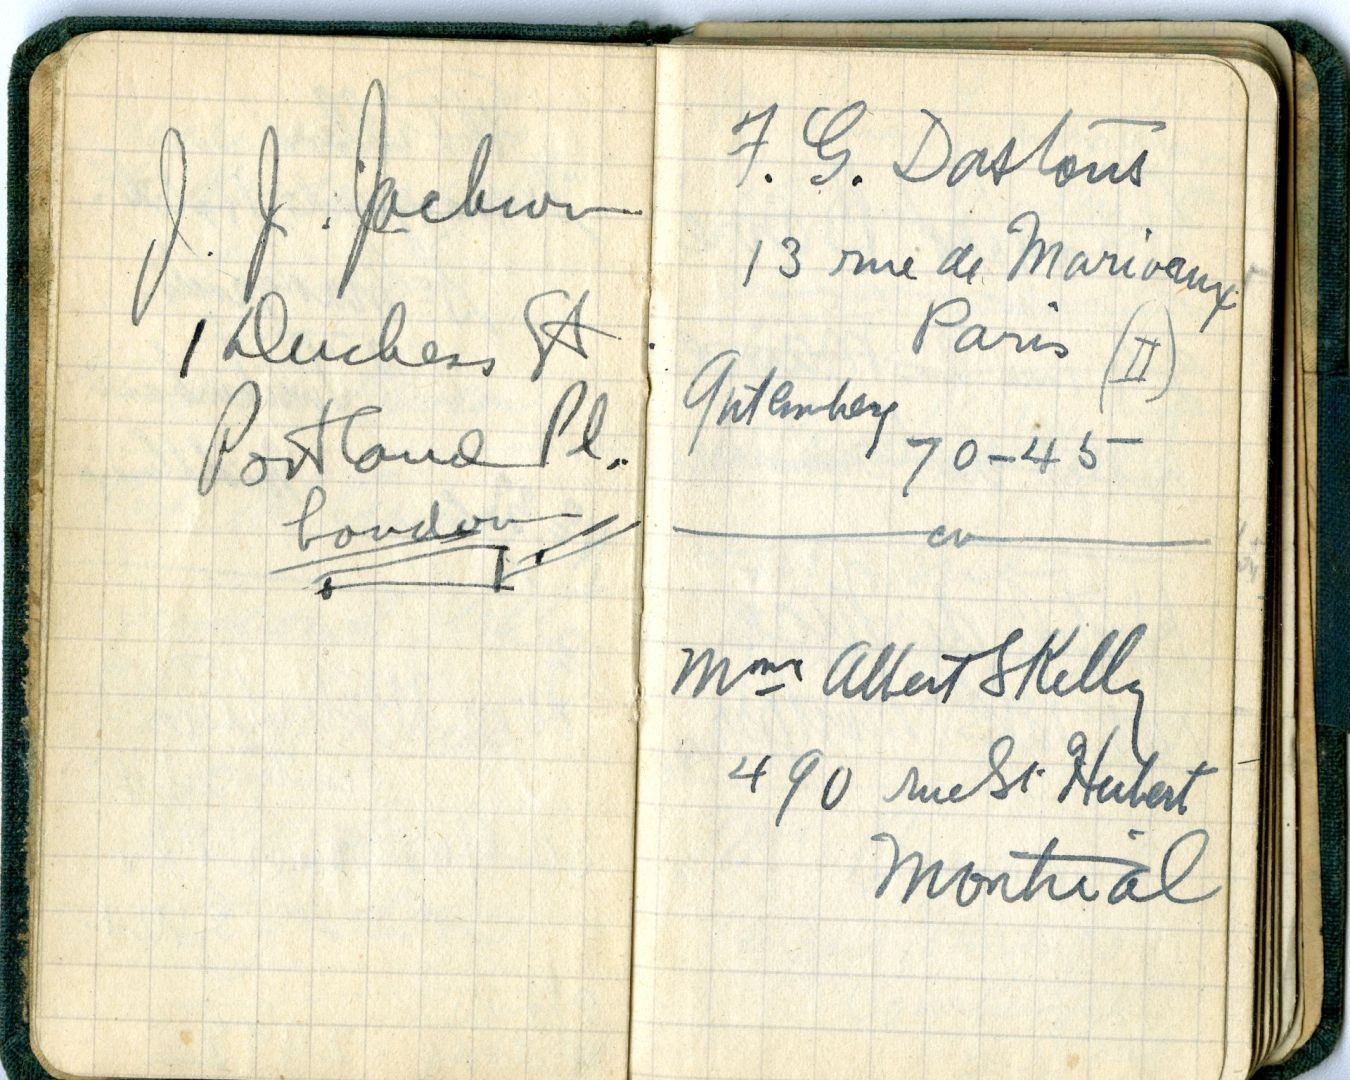 J. J. Jackson
1 Duchess St.
Portland Pl.
London
F. G. Dastous
13 rue de Marivaux
Paris (II)
Gutemberg
70-45
Mme Albert S Kelly
490 rue St Hubert
Montréal